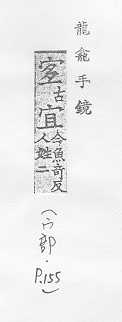 龍龕手鏡
古宜今魚奇反人姓二
（宀部．P.155）